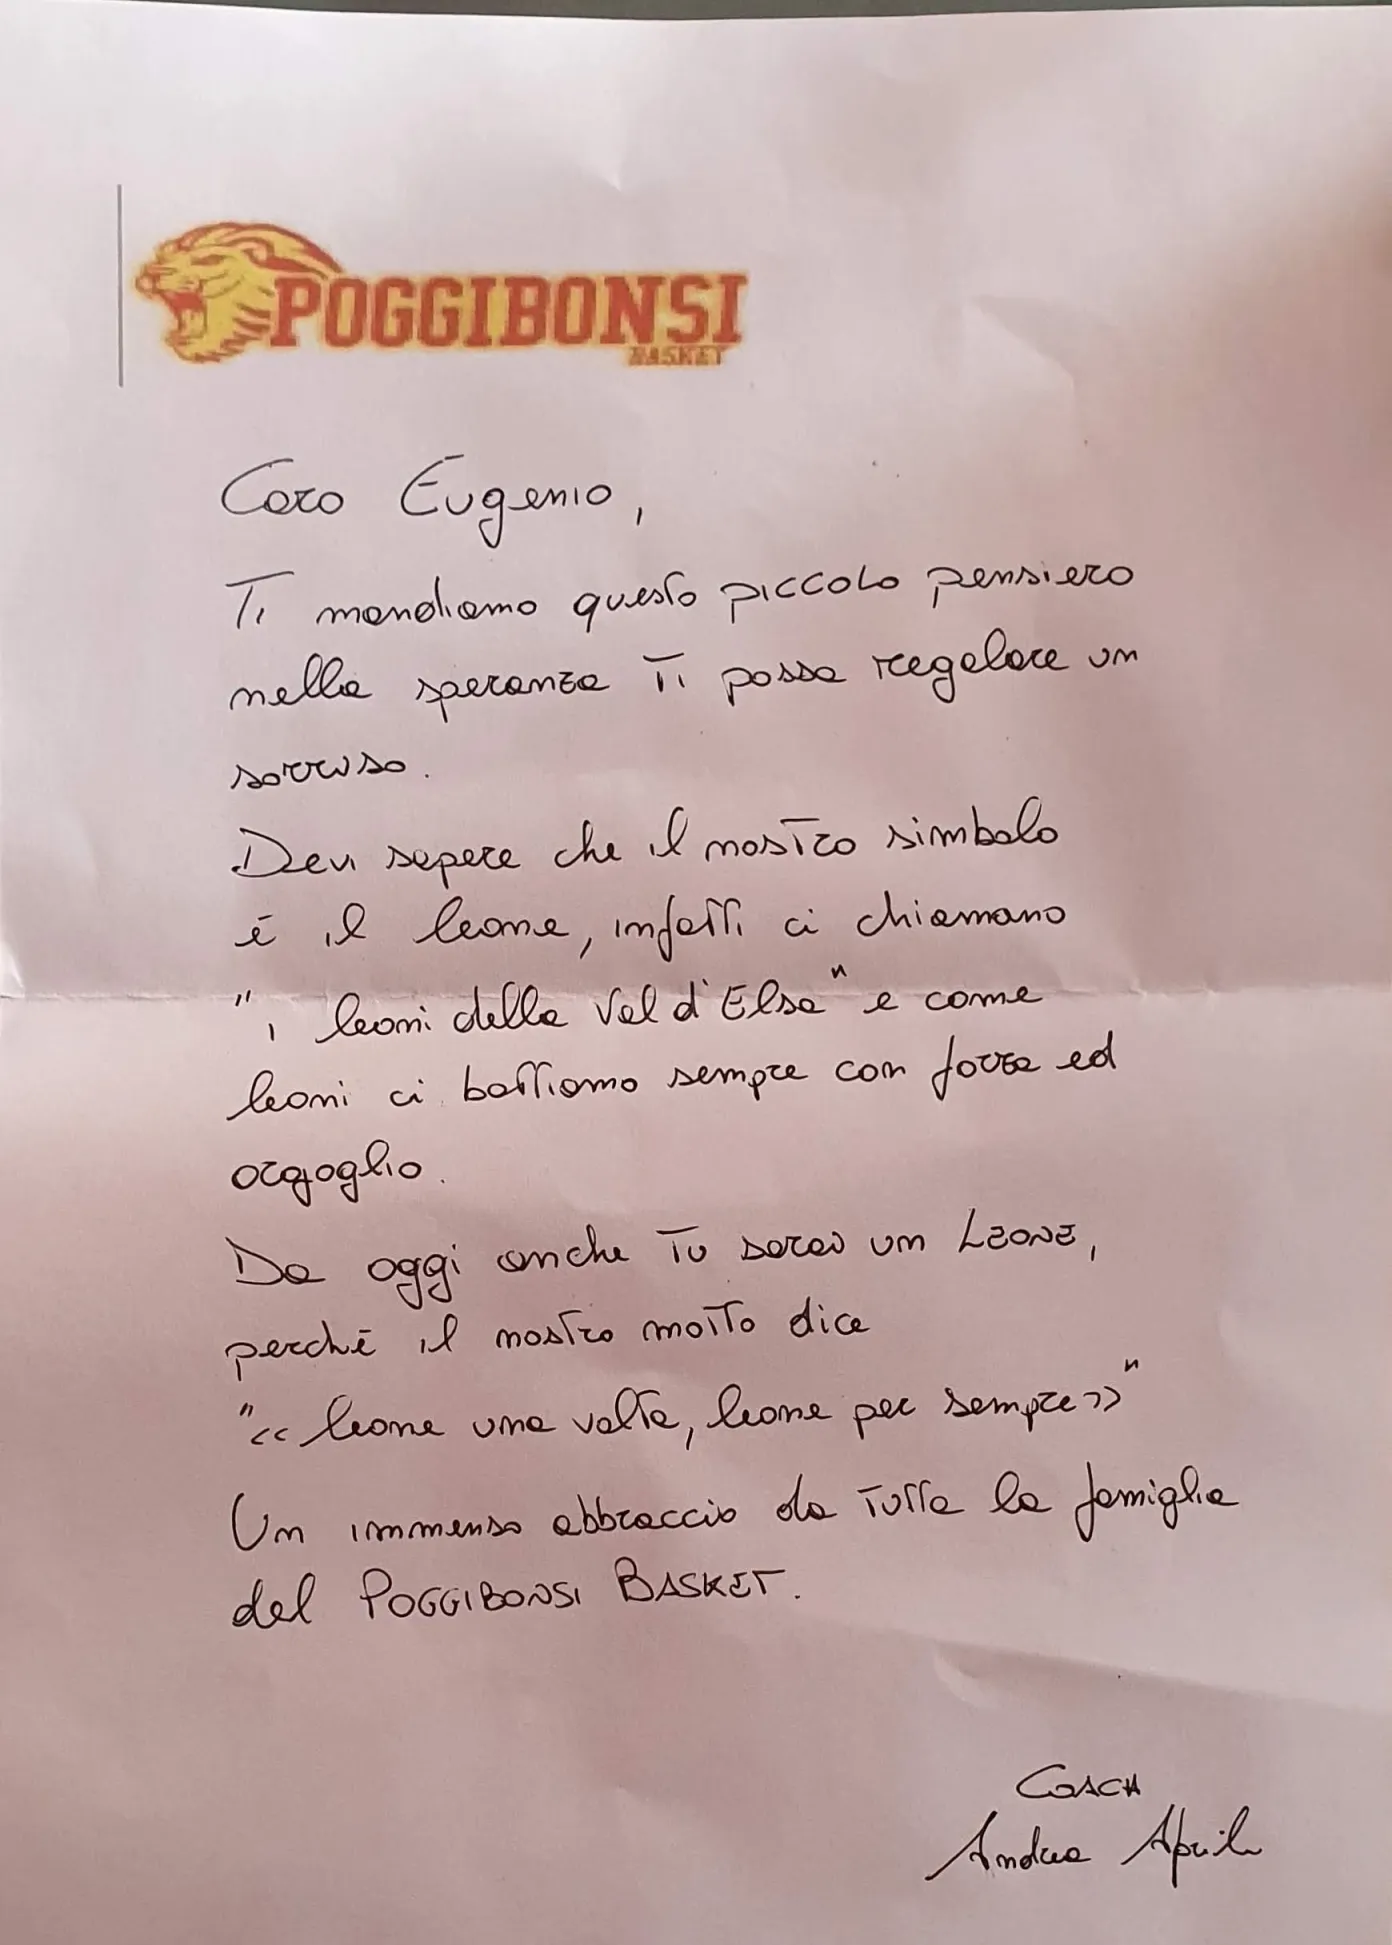 POGGIBONSI
BASKET
Caro Eugenio,
Ti mandiamo questo piccolo pensiero
nella speranza Ti possa regalare un
sorriso.
Devi sapere che il nostro simbolo
è il leone, infatti ci chiamano
"i leoni della Val d'Elsa" e come
leoni ci battiamo sempre con forza ed
orgoglio.
Da oggi anche Tu sarai un LEONE,
perchè il nostro motto dice
"<< leone una volta, leone per sempre >>"
Un immenso abbraccio da Tutta la famiglia
del POGGIBONSI BASKET.
COACH
Andrea April